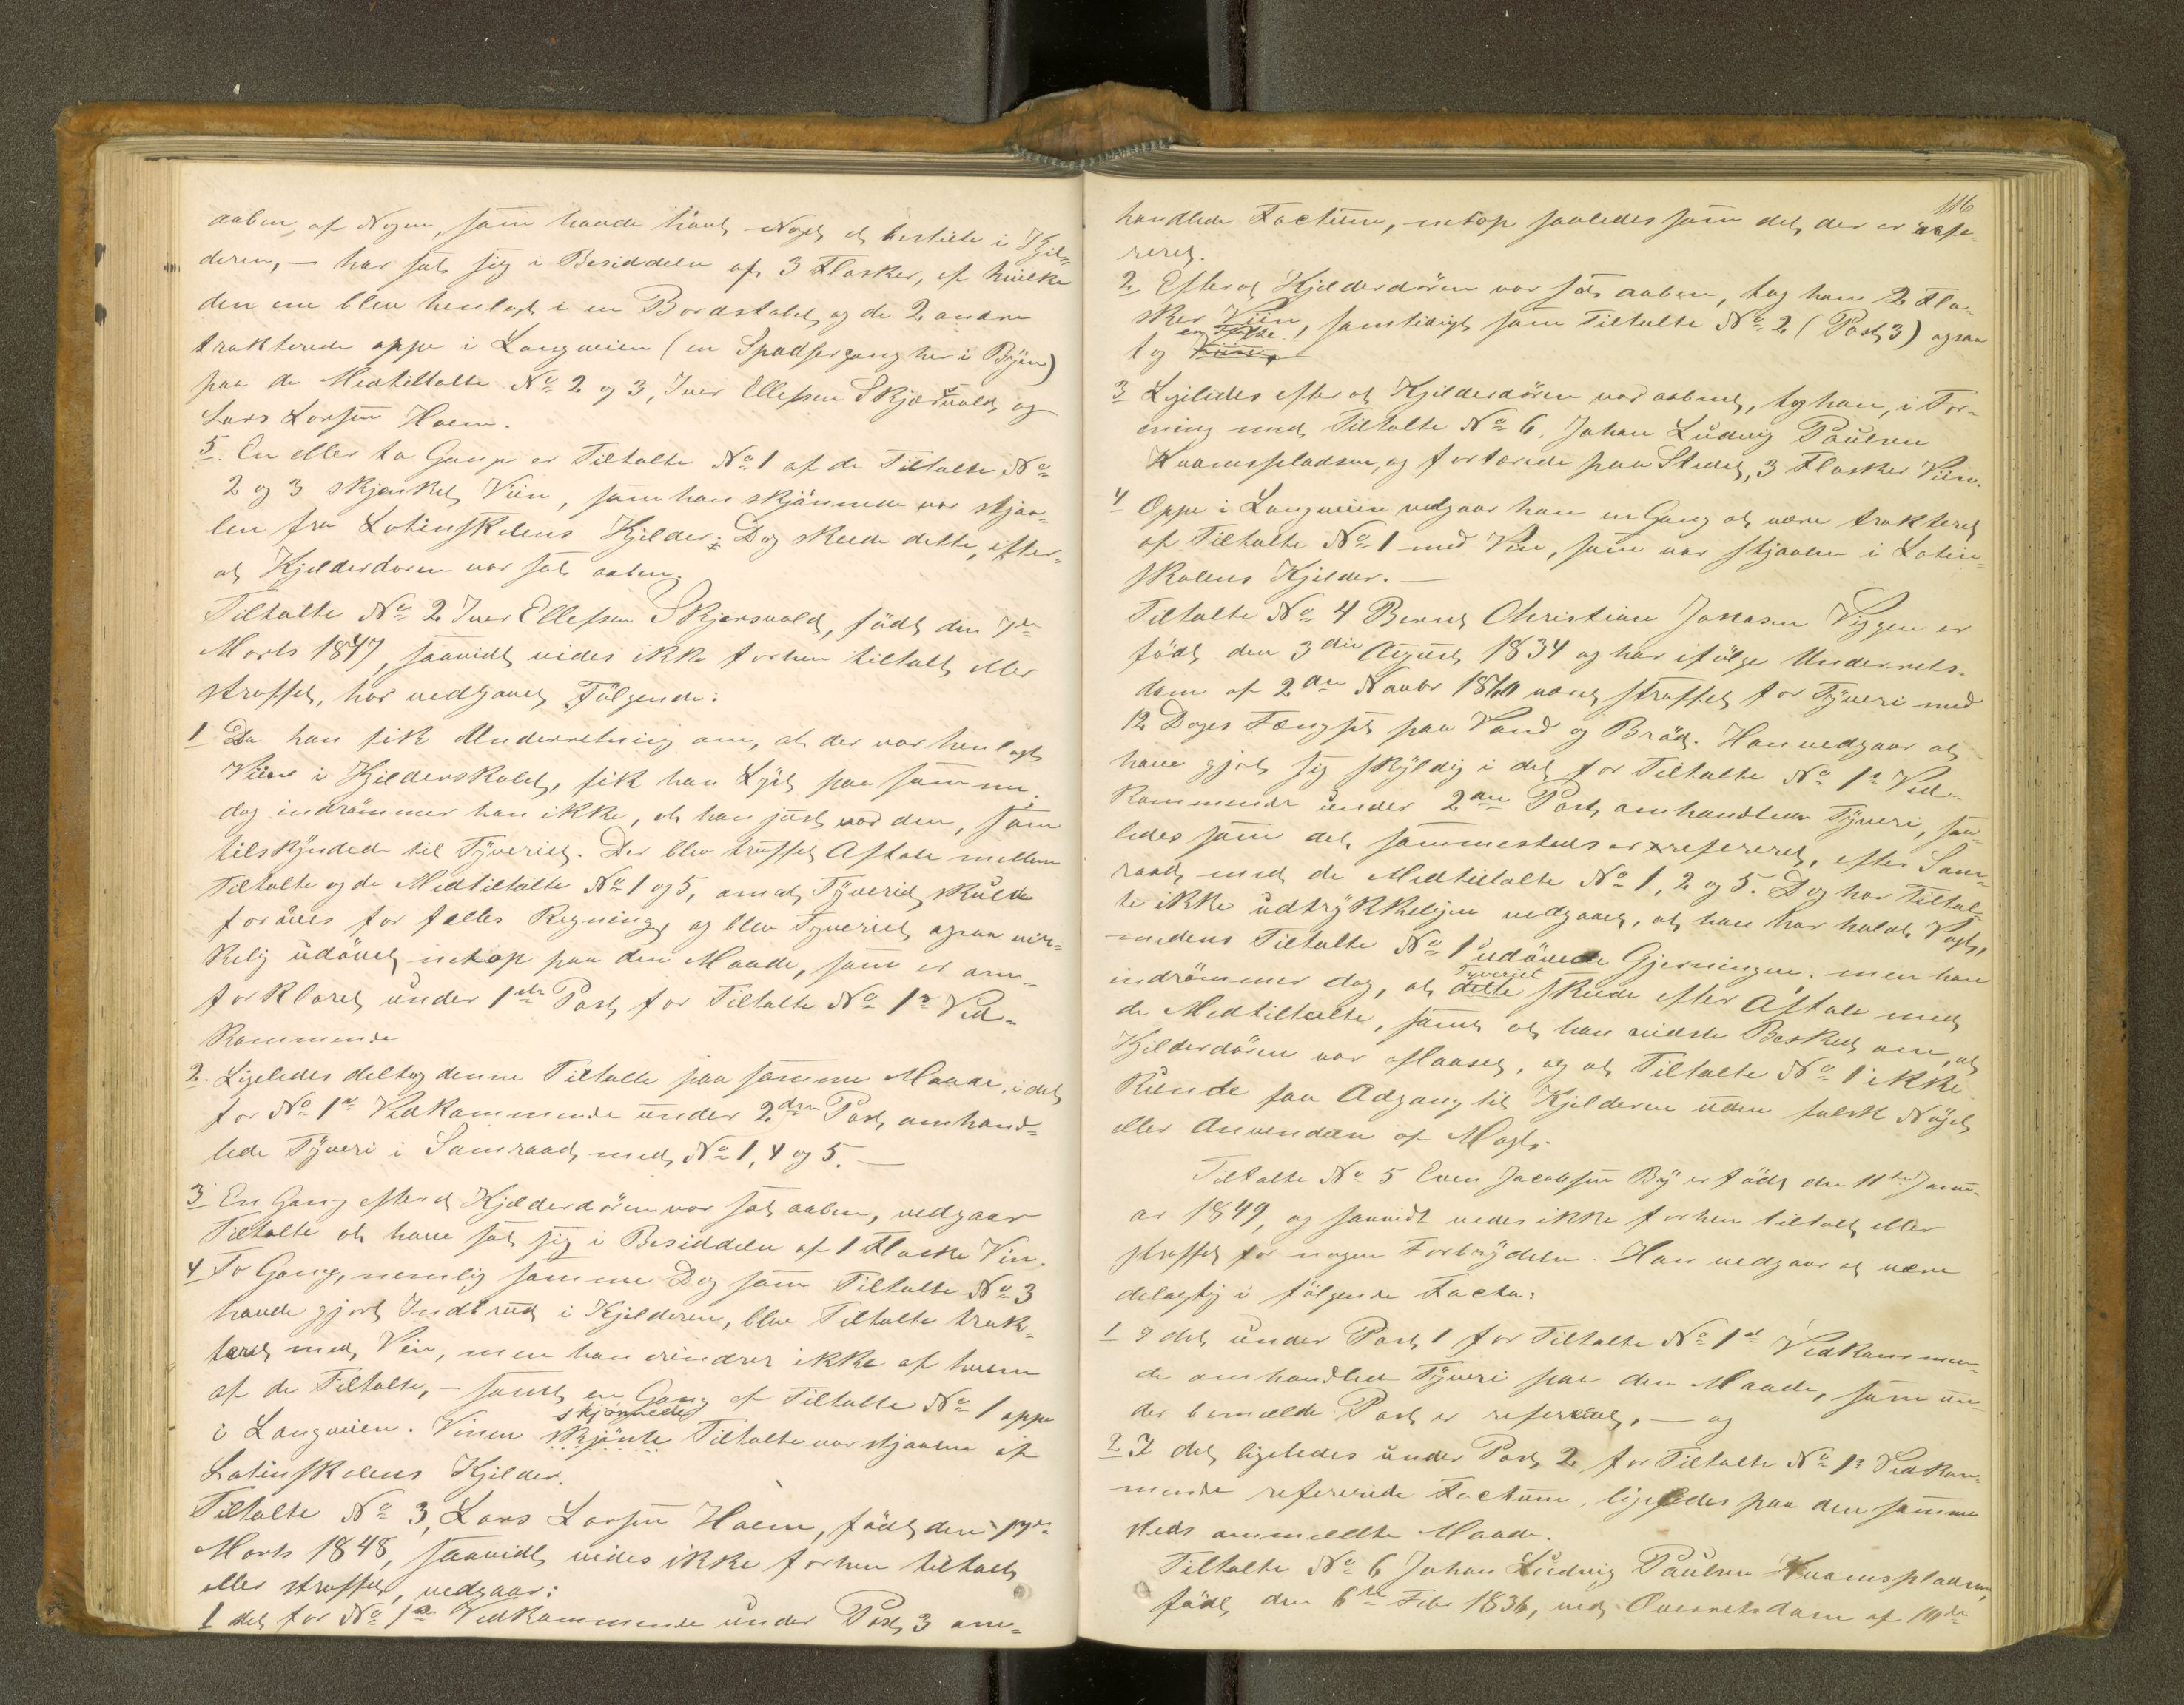 aaben, af Nogen, som havde havt Noget at bestille i Kjel-
deren, — har sat sig i Besiddelse af 3 Flasker, af hvilke
den ene blev henlagt i en Bordstabel, og de 2 andre
trakterede oppe i Langveien (en Spadsergang her i Byen)
paa de Medtiltalte No 2 og 3, Iver Ellefsen Skjersvold og
Lars Larsen Haem.
5. En eller to Gange er Tiltalte No 1 af de Tiltalte No
2 og 3 skjenket Viin, som han skjönnede var stjaa-
len fra Latinskolens Kjelder; Dog skede dette, efter-
at Kjelderdoren var sat aaben.
Tiltalte No 2 Iver Ellefsen Skjersvold, födt den 7de
Marts 1847, saavidt vides ikke forhen tiltalt eller
straffet, har vedgaaet Fölgende:
1 Da han fik Underretning om, at der var henlagt
Viin i Kjelderskabet, fik han Lyst paa samme,
dog indrömmer han ikke, at han just var den, som
tilskyndede til Tyveriet. Der blev truffet Aftale mellem
Tiltalte og de Medtiltalte No 1 og 5, om at Tyveriet skulde
foröves for fælles Regning, og blev Tyveriet ogsaa vir-
kelig udövet netop paa den Maade, som er om-
forklaret under 1ste Post for Tiltalte No 1s Ved-
kommende
2. Ligeledes deltog denne Tiltalte paa samme Maade i det
for No 1s Vedkommende under 2den Post omhand-
lede Tyveri i Samraad med No 1, 4 og 5. —
3 En Gang efterat Kjelderdören var sat aaben, vedgaar
Tiltalte at have sat sig i Besiddelse af 1 Flaske Vin.
4 To Gange, nemlig samme Dag som Tiltalte No 3
havde gjort Indbrud i Kjelderen, blev Tiltalte trak-
teret med Vin, men han erindrer ikke af hvem
af de Tiltalte, — samt en Gang af Tiltalte No 1 oppe
i Langveien. Vinen skjönte skjönnede Tiltalte var stjaalen af
Latinskolens Kjelder.
Tiltalte No 3, Lars Larsen Haem, födt den 17de
Marts 1848, saavidt vides ikke forhen tiltalt
eller straffet, vedgaar:
1 det for No 1s Vedkommende under Post 3 om-
116
handlede Factum, netop saaledes som det der er refe-
reret.
2 Efterat Kjelderdören var sat aaben, tog han 2 Fla-
sker Viin, samtidigt som Tiltalte No 2 (Post 3) ogsaa
tog en Flaske.
3 Ligeledes efterat Kjelderdören var aabnet, tog han, i For-
ening med Tiltalte No 6. Johan Ludvig Paulsen
Kvamspladsen, og fortærede paa Stedet, 3 Flasker Viin.
4 Oppe i Langveien vedgaar han en Gang at være trakteret
af Tiltalte No 1 med Vin, som var stjaalen i Latin-
skolens Kjelder. —
Tiltalte No 4 Bernt Christian Jonasen Viggen er
födt den 3die August 1834 og har ifölge Underrets-
dom af 2den Novbr 1860 været straffet for Tyveri med
12 Dages Fængsel paa Vand og Bröd. Han vedgaar at
have gjort sig skyldig i det for Tiltalte No 1s Ved-
kommende under 2den Post omhandlede Tyveri, saa-
ledes som det sammesteds er refereret, efter Sam-
raad med de Medtiltalte No 1, 2 og 5. Dog har Tiltal-
te ikke udtrykkeligen vedgaaet, at han har holdt Vagt,
medens Tiltalte No 1 udövede Gjerningen, men han
indrömmer dog, at dette Tyveriet skede efter Aftale med
de Medtiltalte, samt at han vidste Besked om, at
Kjelderdören var aflaaset, og at Tiltalte No 1 ikke
kunde faa Adgang til Kjelderen uden falsk Nögel
eller Anvendelse af Magt.
Tiltalte No 5 Even Jacobsen By er födt den 11te Janu-
ar 1849, og saavidt vides ikke forhen tiltalt eller
straffet for nogen Forbrydelse. Han vedgaar at være
delagtig i fölgende Facta:
1 I det under Post 1 for Tiltalte No 1s Vedkommen-
de omhandlede Tyveri paa den Maade, som un-
der bemeldte Post er refereret, — og
2 I det ligeledes under Post 2 for Tiltalte No 1s Vedkom-
mende refererede Factum, ligeledes paa den samme-
steds ommeldte Maade.
Tiltalte No 6 Johan Ludvig Paulsen Kvamspladsen,
födt den 6te Febr 1836, ved Overretsdom af 10de